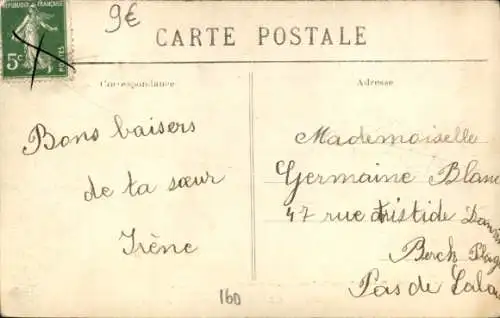 REPUBLIQUE FRANÇAISE
5c
POSTES
9€
CARTE POSTALE
Correspondance
Adresse
Bons baisers
de ta sœur
Irène
Mademoiselle
Germaine Blanc
47 rue Aristide
Berck Plage
Pas de Calai
160